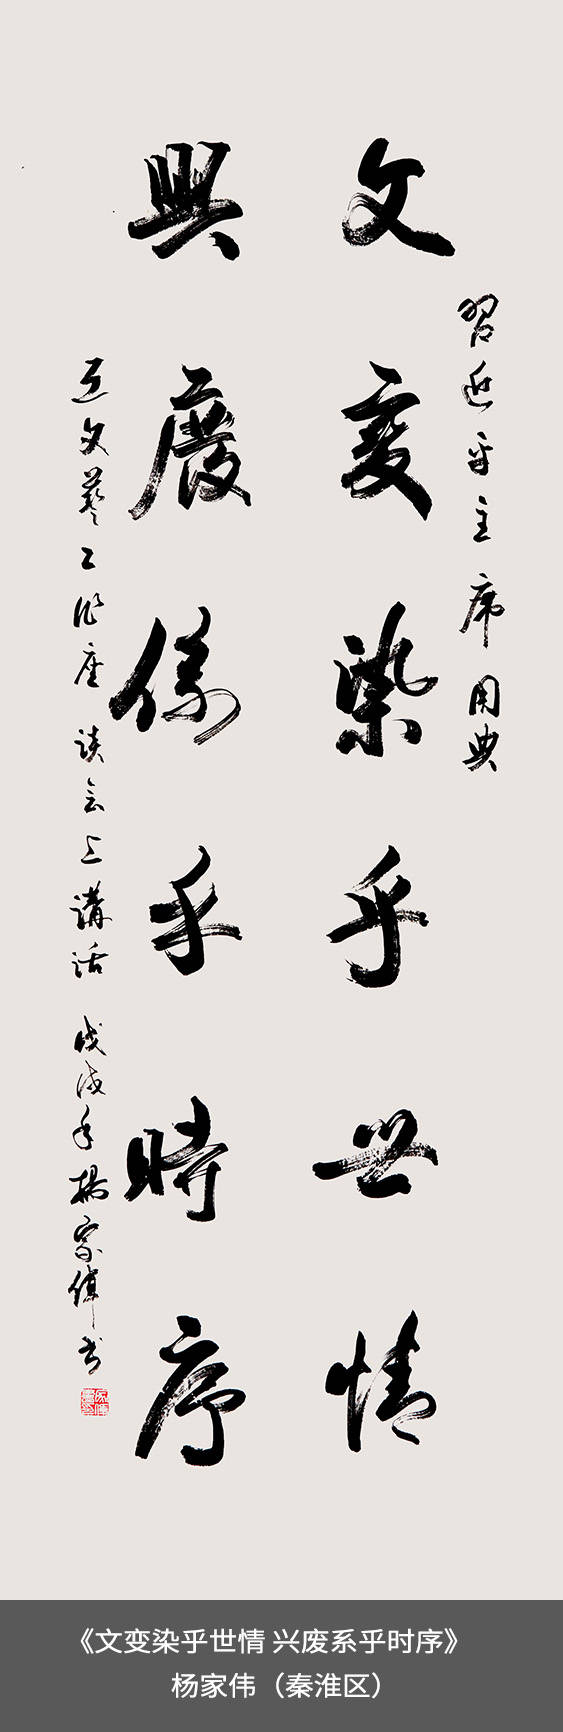 習近平主席用典
文變染乎世情
興廢係乎時序
在文藝工作座談会上講話 戊戌年楊家偉书
《文变染乎世情 兴废系乎时序》
杨家伟（秦淮区）